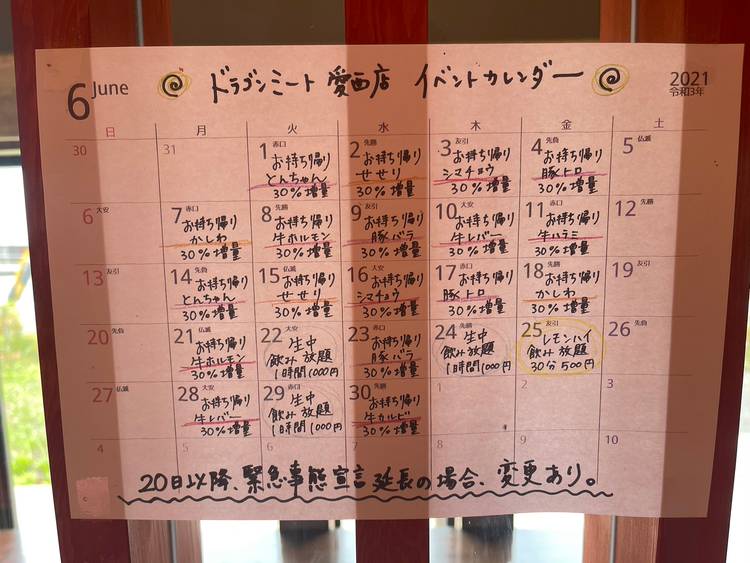 6 June ドラゴンミート 愛西店 イベントカレンダー 2021
令和3年
日 月 火 水 木 金 土
30 31 1 赤口 2 先勝 3 友引 4 先負 5 仏滅
お持ち帰り お持ち帰り お持ち帰り お持ち帰り
とんちゃん せせり シマチョウ 豚トロ
30%増量 30%増量 30%増量 30%増量
6 大安 7 赤口 8 先勝 9 友引 10 大安 11 赤口 12 先勝
お持ち帰り お持ち帰り お持ち帰り お持ち帰り お持ち帰り
かしわ 牛ホルモン 豚バラ 牛レバー 牛ハラミ
30%増量 30%増量 30%増量 30%増量 30%増量
13 友引 14 先負 15 仏滅 16 大安 17 赤口 18 先勝 19 友引
お持ち帰り お持ち帰り お持ち帰り お持ち帰り お持ち帰り
とんちゃん せせり シマチョウ 豚トロ かしわ
30%増量 30%増量 30%増量 30%増量 30%増量
20 先負 21 仏滅 22 大安 23 赤口 24 先勝 25 友引 26 先負
お持ち帰り 生中 お持ち帰り 生中 レモンハイ
牛ホルモン 飲み放題 豚バラ 飲み放題 飲み放題
30%増量 1時間1000円 30%増量 1時間1000円 30分500円
27 仏滅 28 大安 29 赤口 30 先勝 1 2 3
お持ち帰り 生中 お持ち帰り
牛レバー 飲み放題 牛カルビ
30%増量 1時間1000円 30%増量
4 5 6 7 8 9 10
20日以降、緊急事態宣言延長の場合、変更あり。